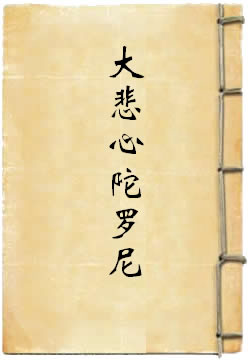 大悲心陀罗尼